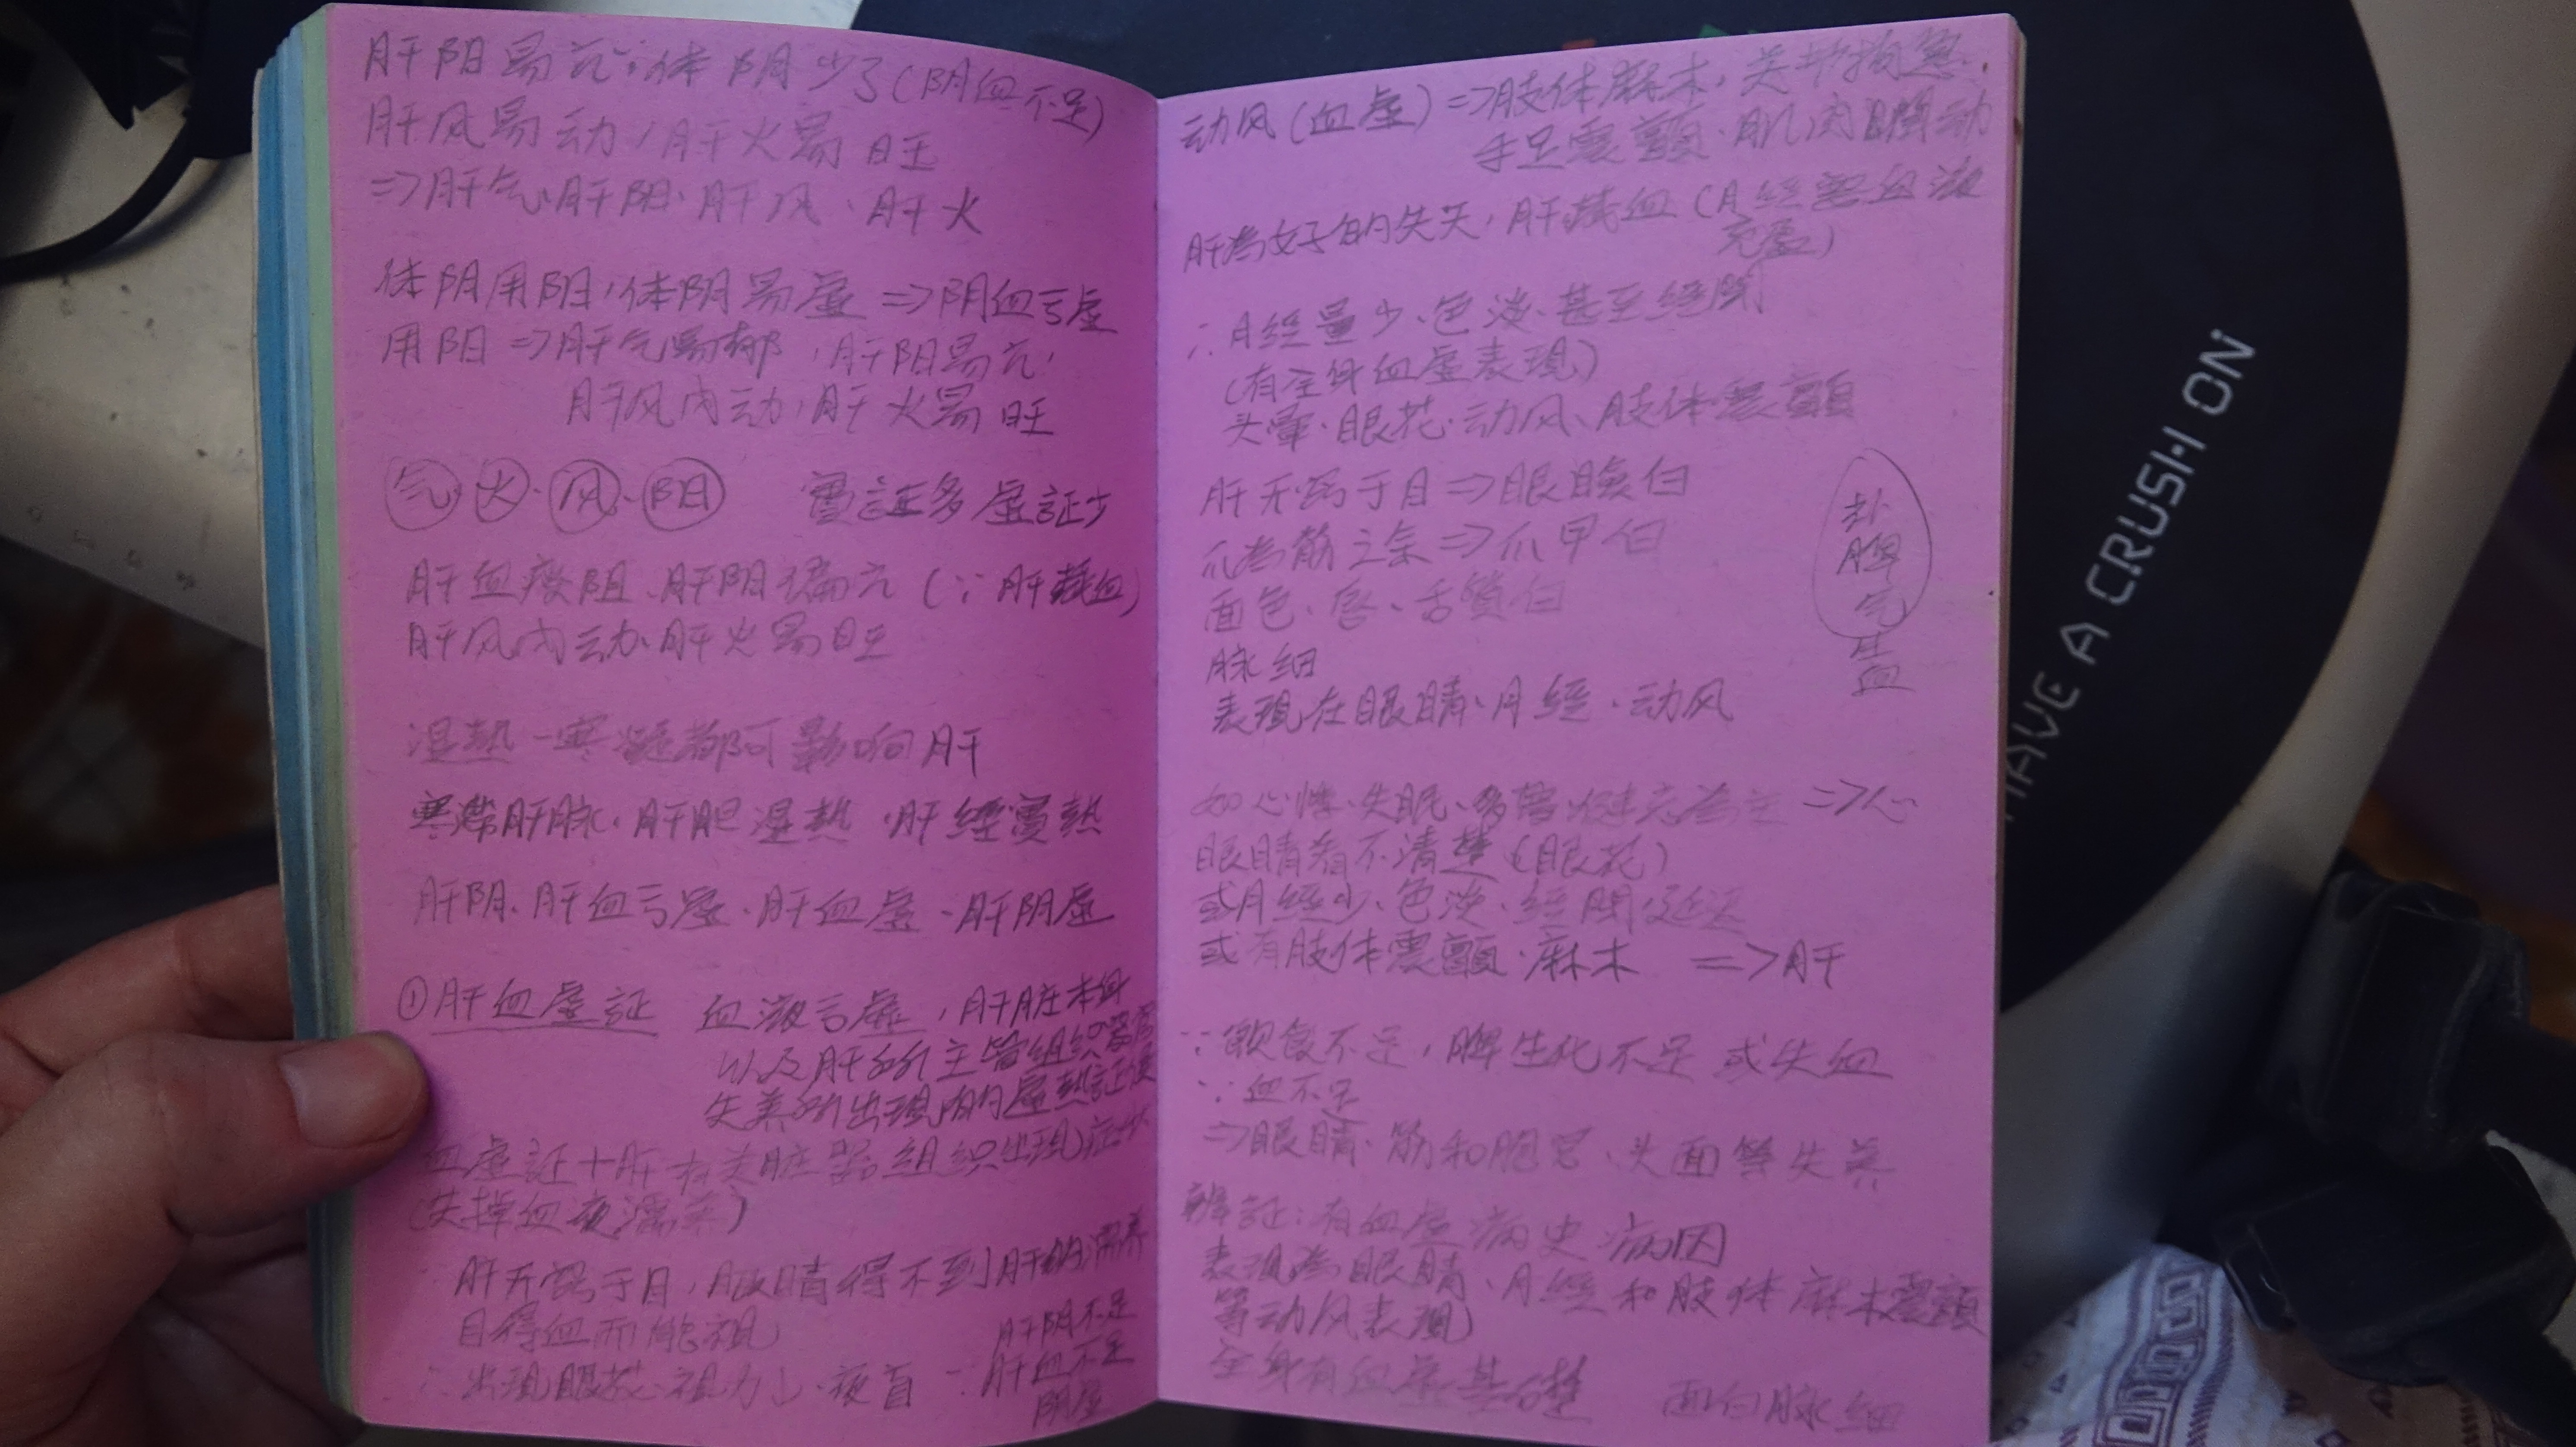 肝阳易亢∵体阴少了(阴血不足)
肝风易动,肝火易旺
=>肝气、肝阳、肝风、肝火
体阴用阳,体阴易虚 =>阴血亏虚
用阳=>肝气易郁,肝阳易亢,
肝风内动,肝火易旺
气、火、风、阳 實証多虚証少
肝血瘀阻、肝阳偏亢(∵肝藏血)
肝风内动、肝火易旺
湿熱、寒凝都可影响肝
寒滞肝脉、肝胆湿熱、肝經實熱
肝阴、肝血亏虚、肝血虚、肝阴虚
①肝血虚証 血液亏虚,肝脏本身
以及肝所主管组织器官
失养所出現的虚熱証候
血虚証+肝有关脏器组织出现症状
(失掉血液濡养)
肝开窍于目,眼睛得不到肝的濡养
目得血而能視
∴出現眼花、視力↓、夜盲 ∵肝血不足
肝阴不足
阴虚
动风(血虚)=>肢体麻木、关节拘急
手足震顫、肌肉瞤动
肝為女子的先天,肝藏血(月經要血液
充盈)
∴月經量少、色淡、甚至經閉
(有全身血虚表現)
头暈、眼花、动风、肢体震顫
肝开窍于目=>眼瞼白
爪為筋之余=>爪甲白
面色、唇、舌質白
脉細
表現在眼睛、月經、动风
补
脾
气
生
血
如心悸、失眠、多夢、健忘為主 =>心
眼睛看不清楚(眼花)
或月經少、色淡、經閉、延迟
或有肢体震顫、麻木 =>肝
∵飲食不足,脾生化不足 或失血
∵血不足
=>眼睛、筋和胞宫、头面等失养
辨証:有血虚病史病因
表現為眼睛、月經和肢体麻木震顫
等动风表現)
全身有血虚基礎 面白脉細
HAVE A CRUSH ON